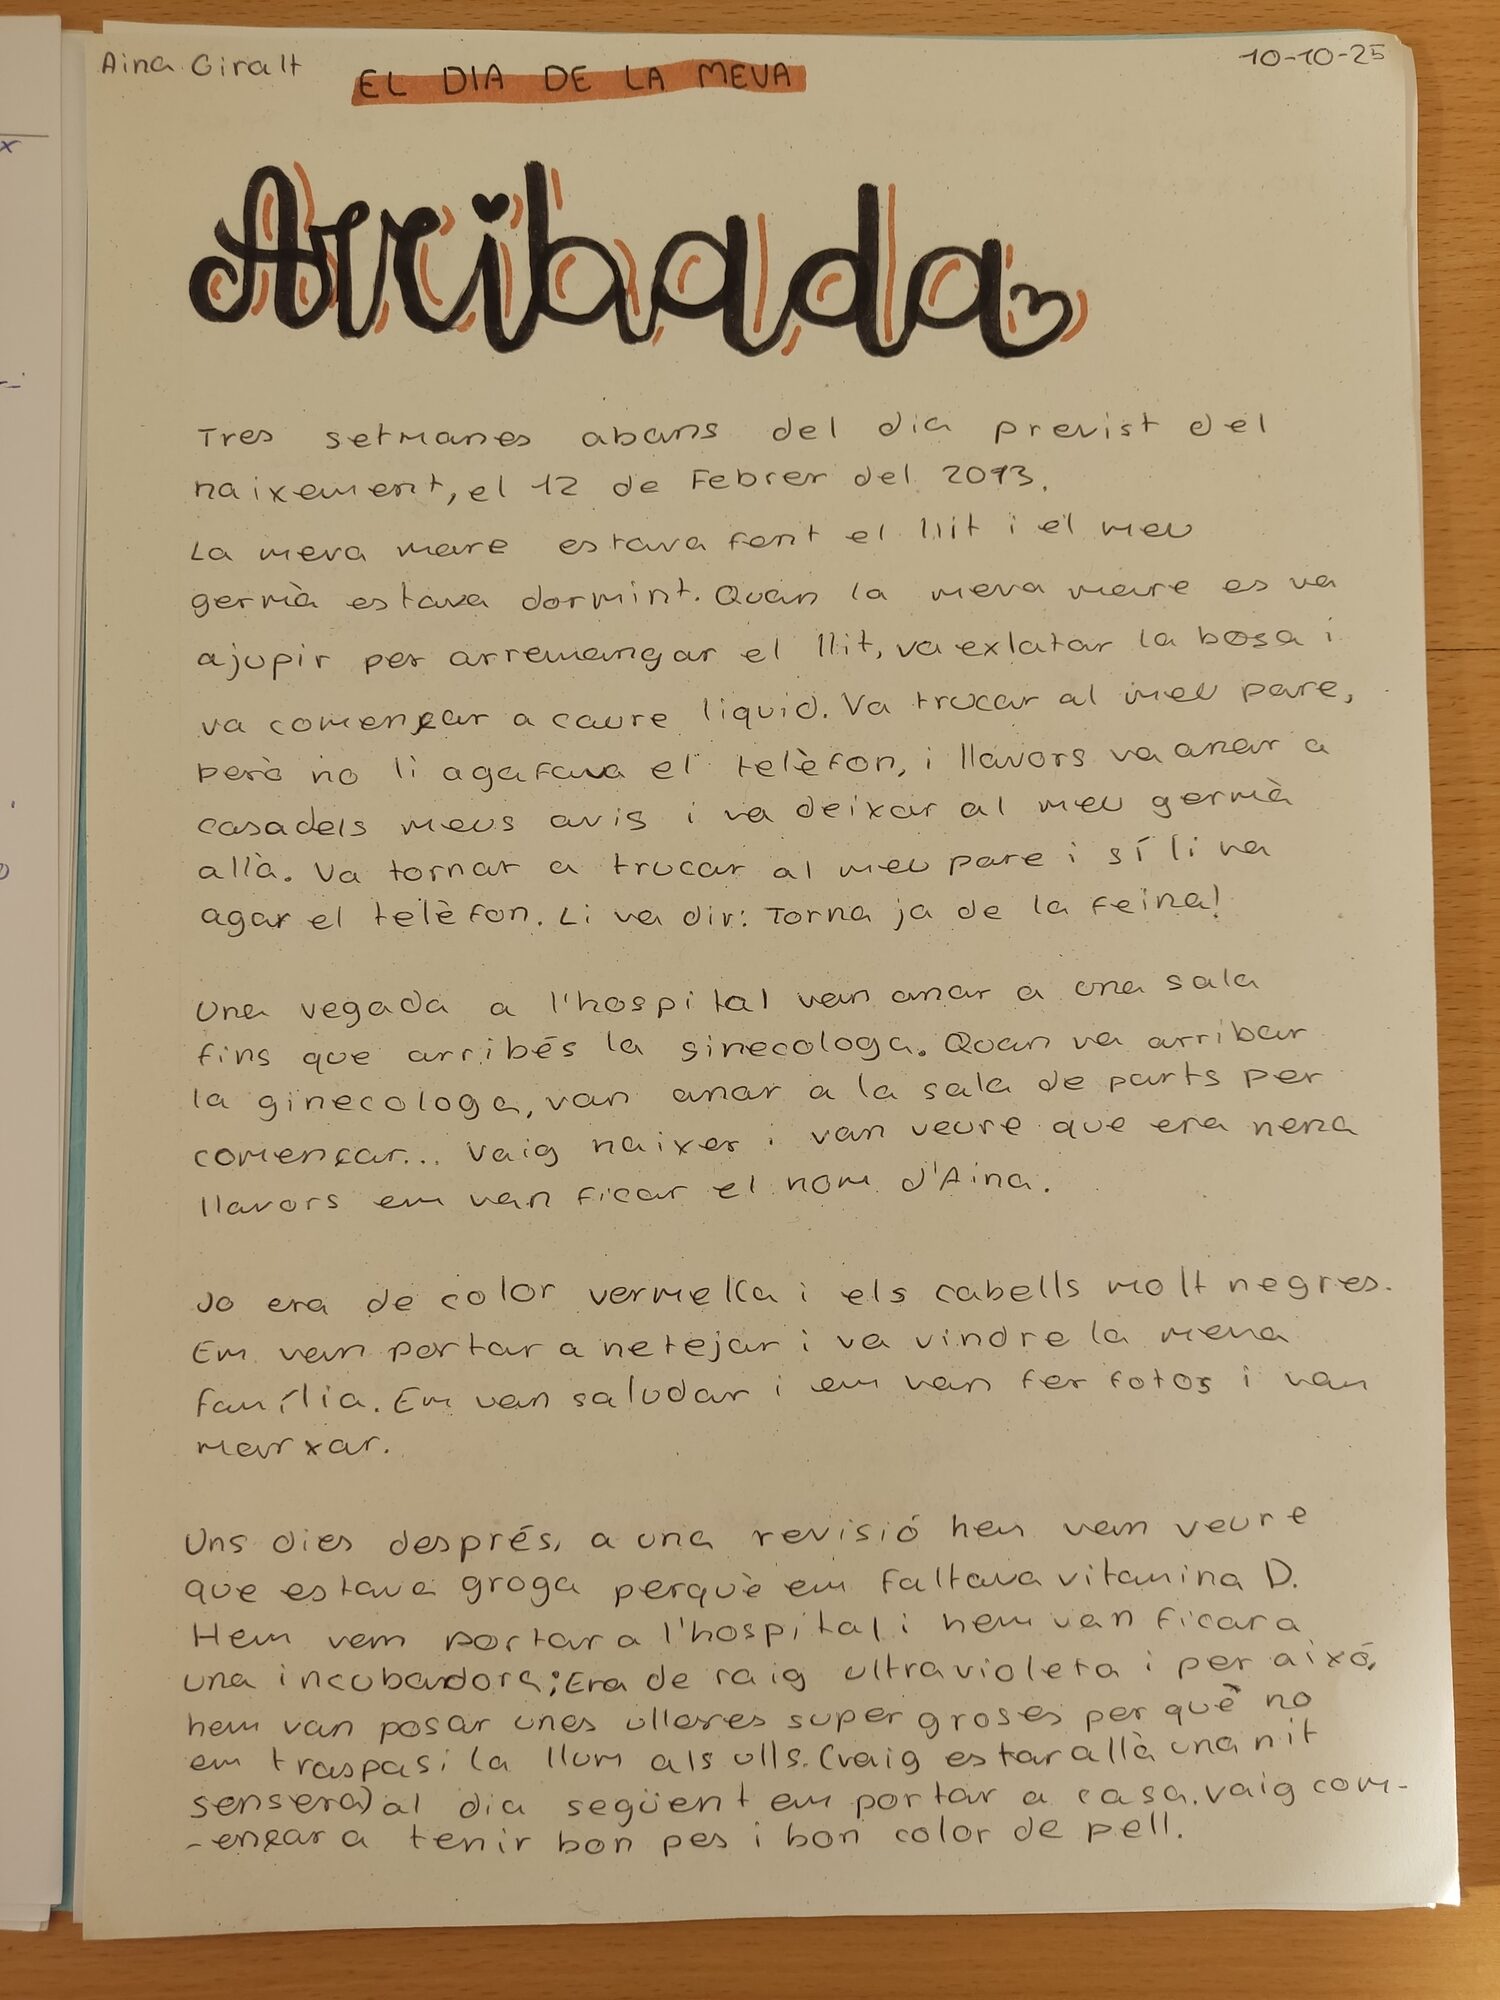 Aina Giralt
10-10-25
EL DIA DE LA MEVA
Arribada
Tres setmanes abans del dia previst del
naixement, el 12 de Febrer del 2013.
La meva mare estava fent el llit i el meu
germà estava dormint. Quan la meva mare es va
ajupir per arremangar el llit, va exlatar la bosa i
va començar a caure liquid. Va trucar al meu pare,
però no li agafava el telèfon, i llavors va anar a
casa dels meus avis i va deixar al meu germà
allà. Va tornar a trucar al meu pare i sí li va
agar el telèfon. Li va dir: Torna ja de la feina!
Una vegada a l'hospital van anar a una sala
fins que arribés la ginecologa. Quan va arribar
la ginecologa, van anar a la sala de parts per
començar... Vaig naixer i van veure que era nena
llavors em van ficar el nom d'Aina.
Jo era de color vermella i els cabells molt negres.
Em van portar a netejar i va vindre la meva
família. Em van saludar i em van fer fotos i van
marxar.
Uns dies després, a una revisió hem vam veure
que estava groga perquè em faltava vitamina D.
Hem vam portar a l'hospital i hem van ficar a
una incubadora; Era de raig ultravioleta i per aixó,
hem van posar unes ulleres super groses per què no
em traspasi la llum als ulls. (vaig estar allà una nit
sensera) al dia següent em portar a casa. vaig com-
-ençar a tenir bon pes i bon color de pell.